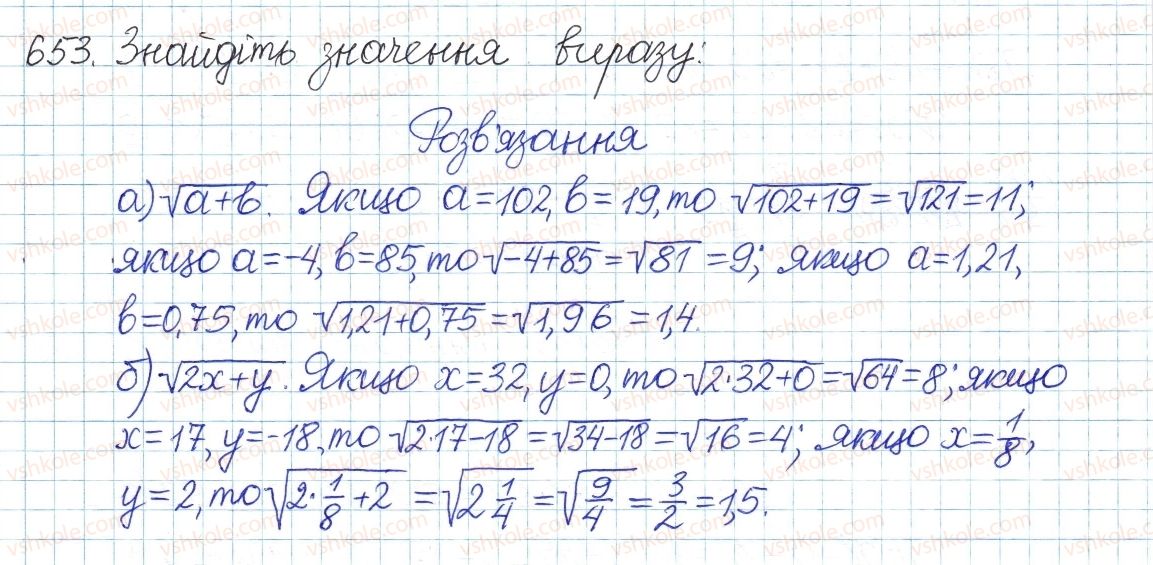 653. Знайдіть значення виразу:
Розв'язання
а) √(a+b). Якщо a=102, b=19, то √(102+19) = √121 = 11;
якщо a=-4, b=85, то √(-4+85) = √81 = 9; якщо a=1,21,
b=0,75, то √(1,21+0,75) = √1,96 = 1,4.
б) √(2x+y). Якщо x=32, y=0, то √(2·32+0) = √64 = 8; якщо
x=17, y=-18, то √(2·17-18) = √(34-18) = √16 = 4; якщо x=1/8,
y=2, то √(2·1/8+2) = √(2 1/4) = √(9/4) = 3/2 = 1,5.